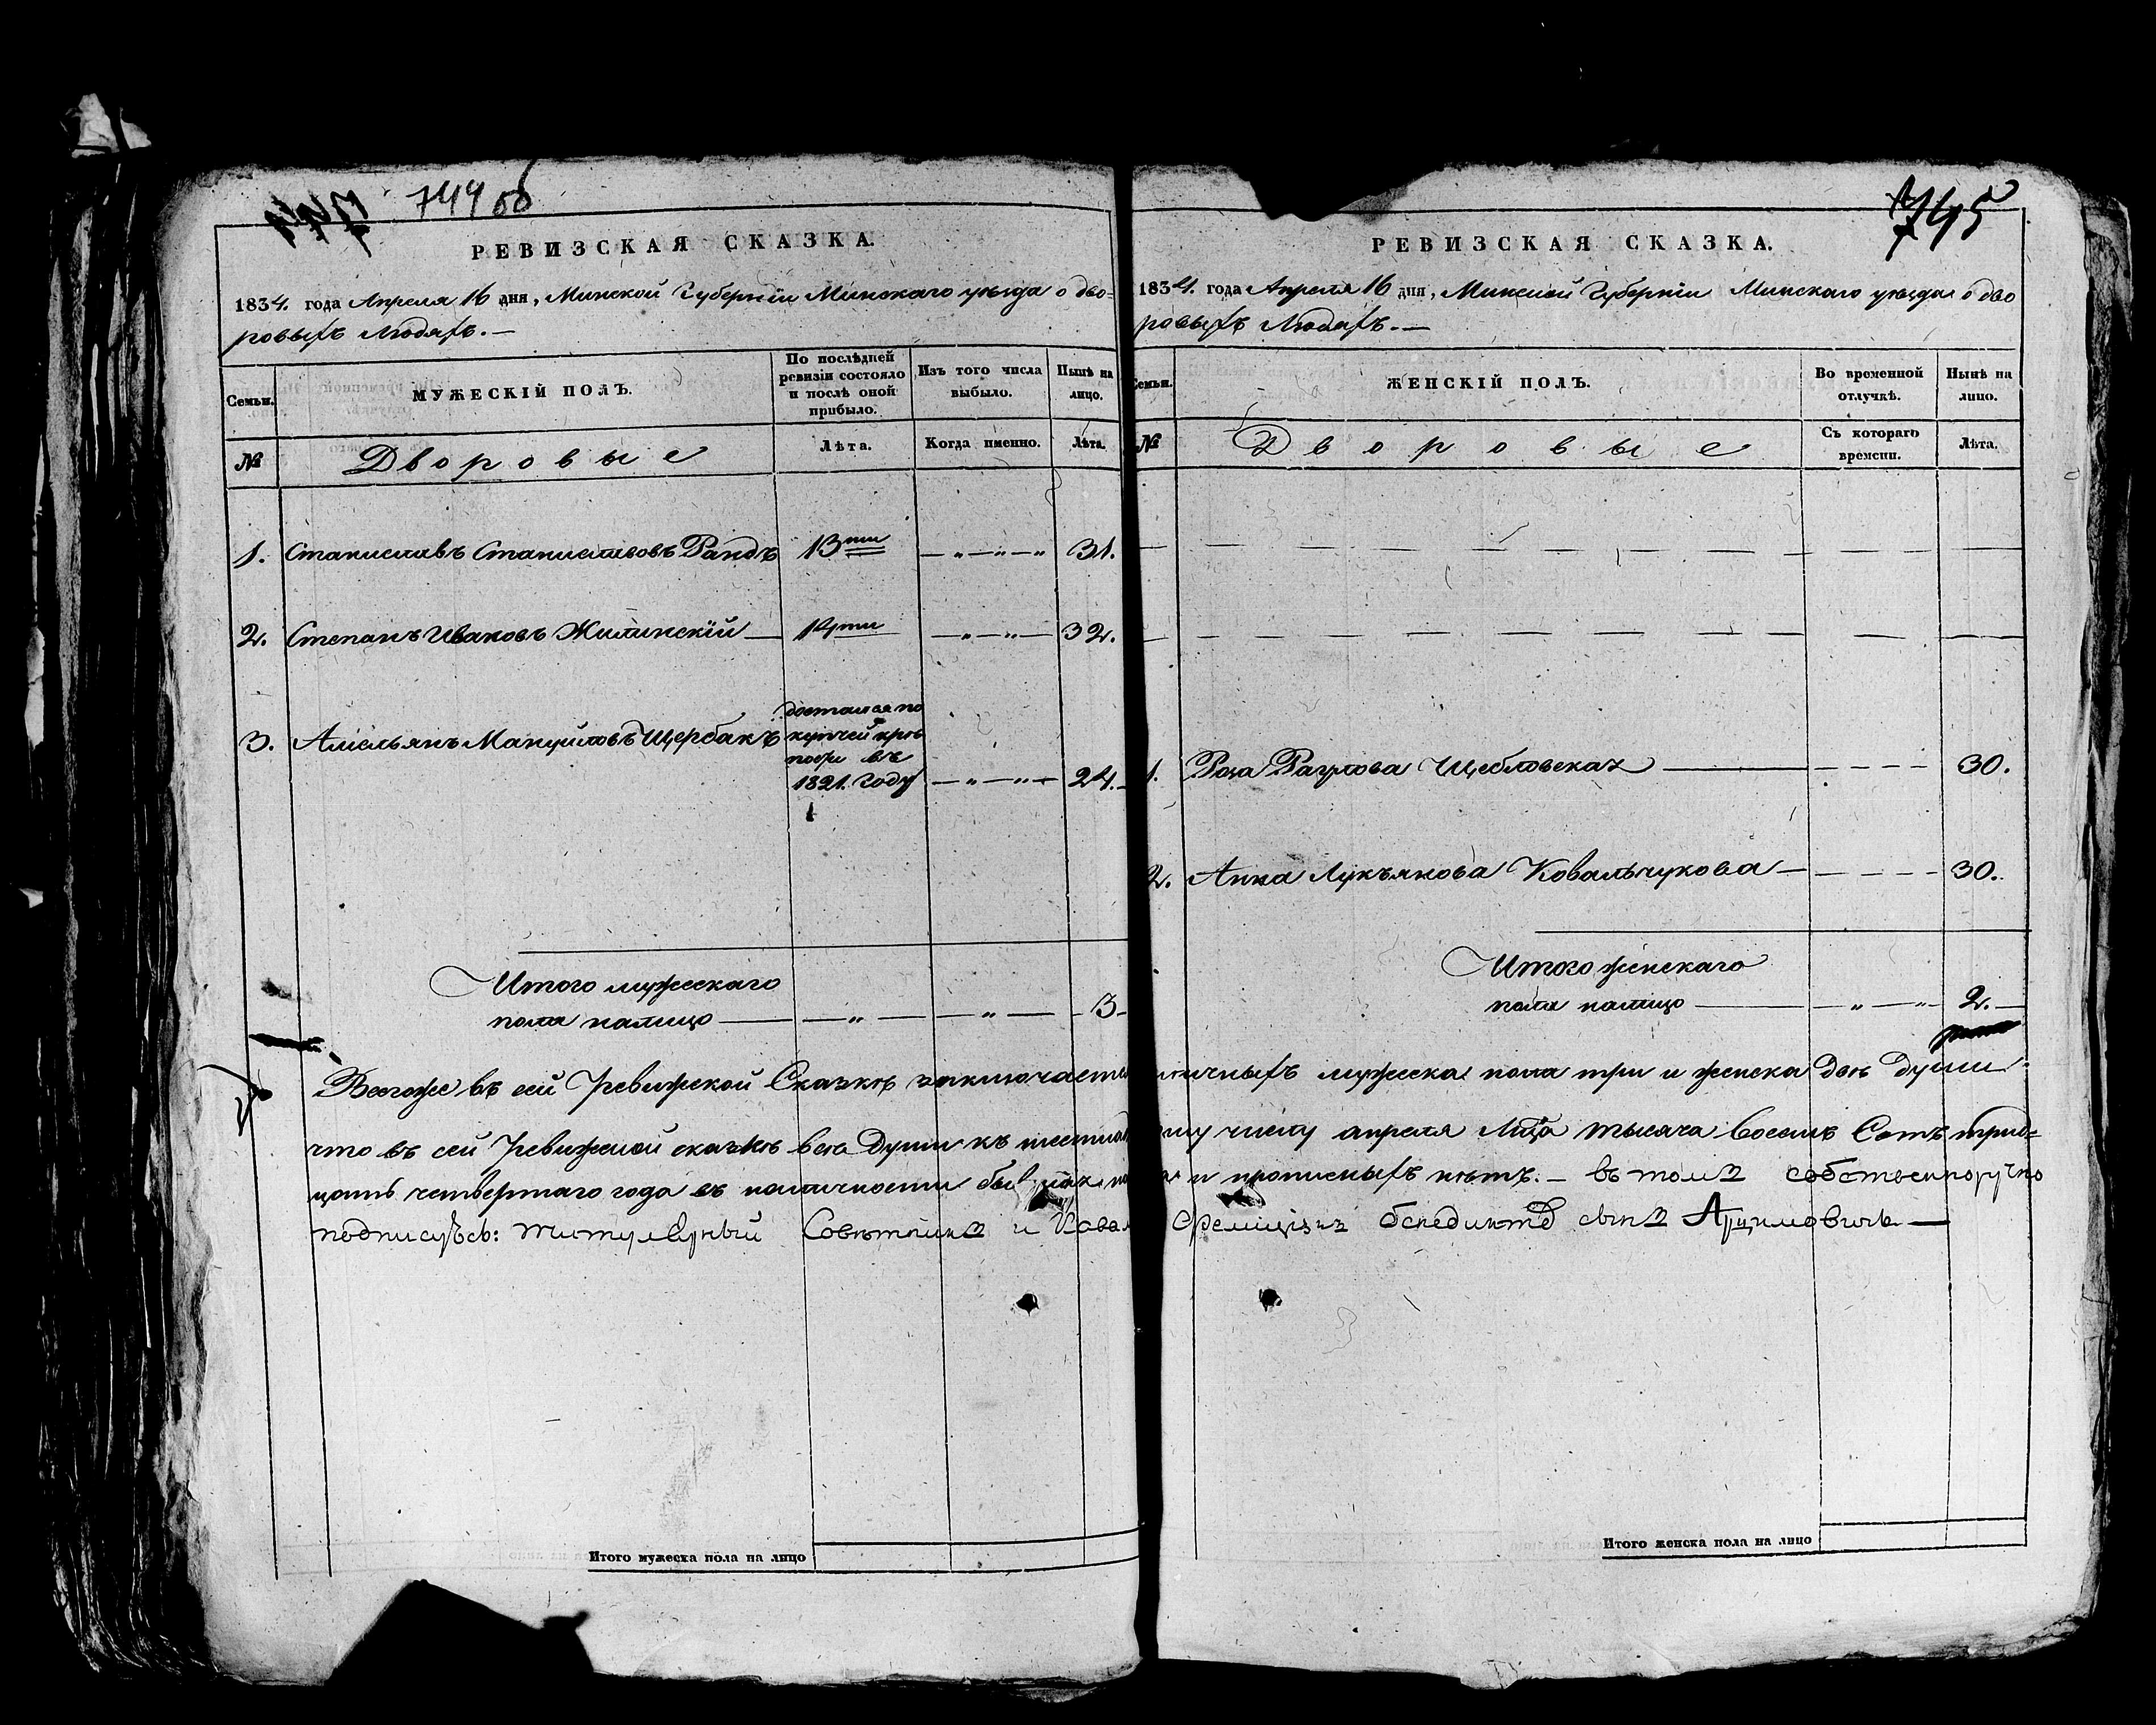 744 об
РЕВИЗСКАЯ СКАЗКА.
1834. года Апреля 16 дня, Минской Губерніи Минскаго уѣзда о дво-
ровыхъ Людяхъ. —
Семьи.
МУЖЕСКІЙ ПОЛЪ.
По послѣдней ревизіи состояло и послѣ оной прибыло.
Изъ того числа выбыло.
Нынѣ на лицо.
№
Дворовые
Лѣта.
Когда именно.
Лѣта.
1. Станиславъ Станиславовъ 13ти — „ — „ — „ 31.
2. Степанъ Ивановъ Жилинскій — 14ти — „ — „ — 32.
достался по
3. Амельянъ Мануйловъ Щербакъ купчей крѣ
пости въ
1821. Году — „ — „ — 24.
Итого мужескаго
пола налицо — — „ — — „ — 3
Итого мужеска пола на лицо
745
РЕВИЗСКАЯ СКАЗКА.
1834. года Апреля 16 дня, Минской Губерніи Минскаго уѣзда о дво
ровыхъ Людяхъ. —
Семьи.
ЖЕНСКІЙ ПОЛЪ.
Во временной отлучкѣ.
Нынѣ на лицо.
№
Дворовые
Съ котораго времени.
Лѣта.
1. Роза Щебловская — — — — — 30.
2. Анна Лукъянова Ковальчукова — — — — — 30.
Итого женскаго
пола налицо — — „ — „ — 2. —
Всегоже въ сей Ревижской Сказкѣ заключается личныхъ мужеска пола три и женска двѣ души
что въ сей Ревижской сказкѣ всѣ души къ числу апреля Мца тысяча восемь Сотъ трид=
цать четвертаго года въ наличности и прописныхъ нѣтъ. — въ томъ собственноручно
подписуюсь: Титулярный Совѣтникъ и сынъ Арцимовичъ —
Итого женска пола на лицо